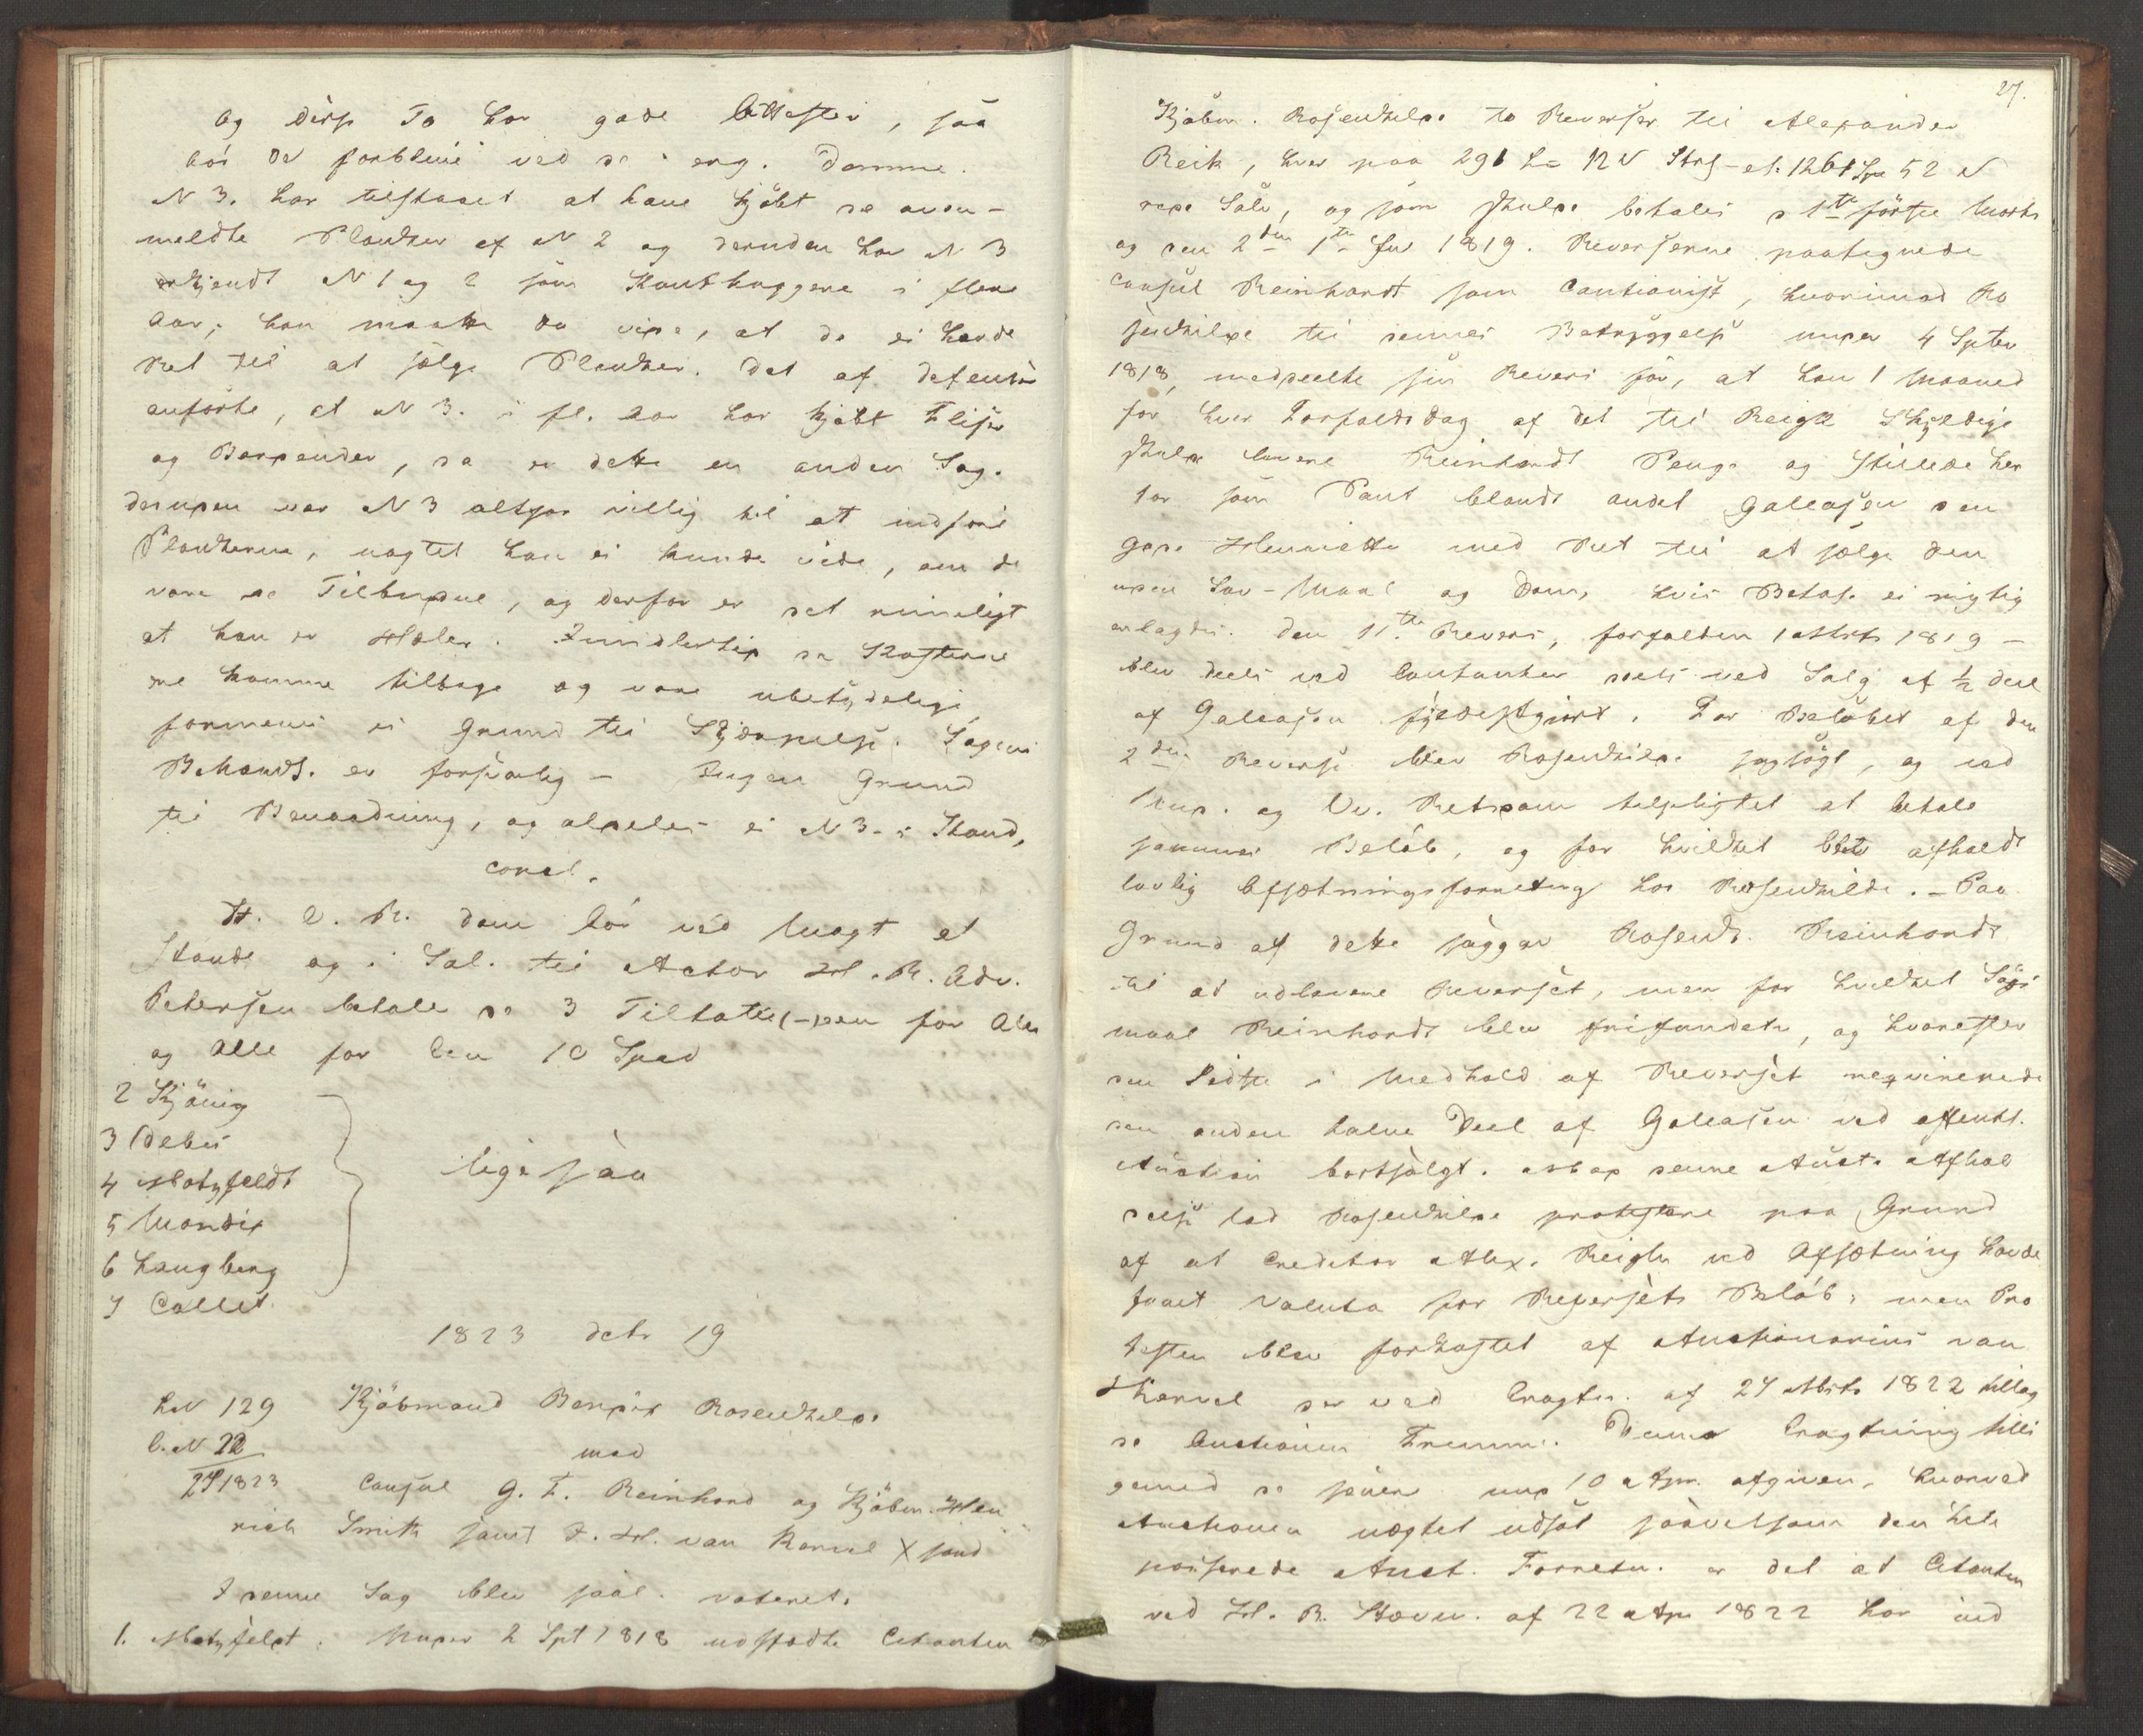 og disse To har gode Attester, saa
bør de forblive ved de i eng. Domme.
N 3. har tilstaaet at have kjøbt de oven-
meldte Planker af N 2 og desuden har N 3
erkjendt N 1 og 2 som Tømthuggere i flere
Aar; han maatte da vide, at de ei havde
Ret til at sælge Planker. Det af Defensor
anførte, at N 3. i fl. Aar har kjøbt Fliser
og Barender, da er dette en anden Sag.
desuden var N 3 altfor villig til at indfrie
Plankerne, uagtet han ei kunde vide, om de
vare de Tilbudne, og derfor er det rimeligt
at han er Hæler. Imidlertid da Kosterne
ere komne tilbage og vare ubetydelige
formenes ei Grund til Skjærpelse. Sagens
Behandl. er forsvarlig – Ingen Grund
til Benaadning, og aldeles ei N 3. i Stand,
concl.
H. O. R. Dom bør ved Magt at
Stande og i Sal. til Actor H. R. Adv.
Petersen betale de 3 Tiltalte (–) een for Alle
og Alle for Een 10 Spd
2 Kjønig
3 Debes
4 Motzfeldt
5 Mandix
6 Langberg
7 Collet.
ligesaa
1823 Decbr 19
L.N 129 Kjøbmand Bendix Rosenkilde
C.N 22
med
27 1823 Consul G. F. Reinhard og Kjøbm. Hen
rich Smith samt J. H. van Kervel X sand
I denne Sag blev saal. voteret.
1. Motzfeldt: Under 2 Spt 1818 udstædte Citanten
27.
Kjøbm. Rosenkilde to Reverser til Alexander
Reik, hver paa 291 L. 12 Strl. – el. 1261 Spd 52
rede Sølv, og som skulde betales d 1te første Marts
og den 2den 1te Jul 1819. Reverserne paategnede
Consul Reinhardt som Cautionist, hvorimod Ro
senkilde til dennes Betryggelse under 4 Spter
1818, meddeelte sin Revers for, at han 1 Maaned
før hver Forfaldsdag af det til Reigh Skyldige
skulde levere Reinhardt Penge og stillede her
for som Pant blandt andet Galeasen den
gode Henriette med Ret til at sælge den
uden Lov-Maal og Dom, hvis Betal. ei rigtig
erlagdes. Den 1te Revers, forfalden 1 Marts 1819 –
blev deels ved Contanter deels ved Salg af ½ Deel
af Galeasen fyldestgjort. For Beløbet af den
2den Reverse blev Rosenkilde sagsøgt, og ved
Und. og Ov. Retsdom tilpligtet at betale
sammes Beløb, og for hvilket blev afholdt
lovlig Afsætningsforretng hos Rosenkilde. – Paa
Grund af dette søger Rosenk. Reinhardt
til at udlevere Reverset, men for hvilket Søgs
maal Reinhardt blev frifunden, og hvorefter
den Sidste i Medhold af Reverset reqvirerede
den anden halve Deel af Galeasen ved offentl.
Auction bortsolgt. Mod denne Auct. Afhol
delse lod Rosenkilde protestere paa Grund
af at Creditor Alex. Reigh ved Afsætning havde
faaet Valuta for Reversets Beløb, men Pro
testen blev forkastet af Auctionarius van
Kervel der ved Eragtn. af 27 Marts 1822 tillod
de Auctionens Fremme. Denne Eragtning tilli
gemed de senere und 10 Apr. afgiven, hvorved
Auctionen nægtet udsat saavelsom den hele
passerede Auct. Forretn. er det at Citanten
ved H. R. Stævn. af 22 Apr 1822 har ind